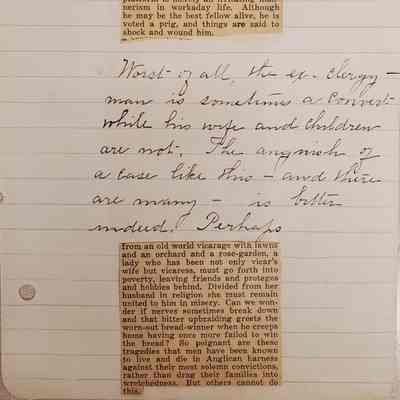 nerism in workaday life. Although
he may be the best fellow alive, he is
voted a prig, and things are said to
shock and wound him.
Worst of all, the ex-clergy-
man is sometimes a convert
while his wife and children
are not. The anguish of
a case like this - and there
are many - is bitter
indeed. Perhaps
from an old world vicarage with lawns
and an orchard and a rose-garden, a
lady who has been not only vicar's
wife but vicaress, must go forth into
poverty, leaving friends and proteges
and hobbies behind. Divided from her
husband in religion she must remain
united to him in misery. Can we won-
der if nerves sometimes break down
and that bitter upbraiding greets the
worn-out bread-winner when he creeps
home having once more failed to win
the bread? So poignant are these
tragedies that men have been known
to live and die in Anglican harness
against their most solemn convictions,
rather than drag their families into
wretchedness. But others cannot do
this.